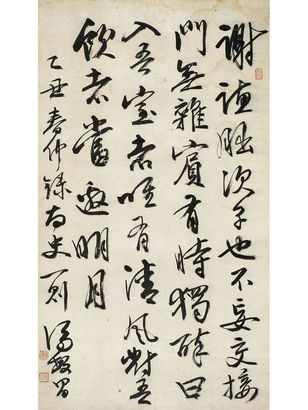 謝譓朏次子也不妄交接
門無雜賓有時獨醉曰
入吾室者唯有清風對吾
飲者當邀明月
乙丑春仲錄南史一則 馮敏昌